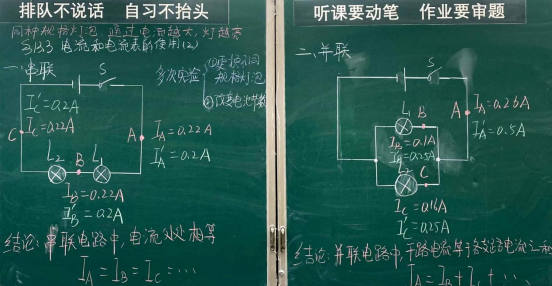 排队不说话 自习不抬头
同种规格灯泡,通过电流越大,灯越亮
§13.3 电流和电流表的使用(2)
一、串联
多次实验
①更换不同规格灯泡
②改变电池节数
S
I'C=0.2A
IC=0.22A
C
A
IA=0.22A
I'A=0.2A
L2
B
L1
IB=0.22A
I'B=0.2A
结论:串联电路中,电流处处相等
IA=IB=IC=…
听课要动笔 作业要审题
二、并联
S
A
IA=0.26A
I'A=0.5A
L1
B
IB=0.1A
I'B=0.25A
L2
C
IC=0.16A
I'C=0.25A
结论:并联电路中,干路电流等于各支路电流之和
IA=IB+IC+…